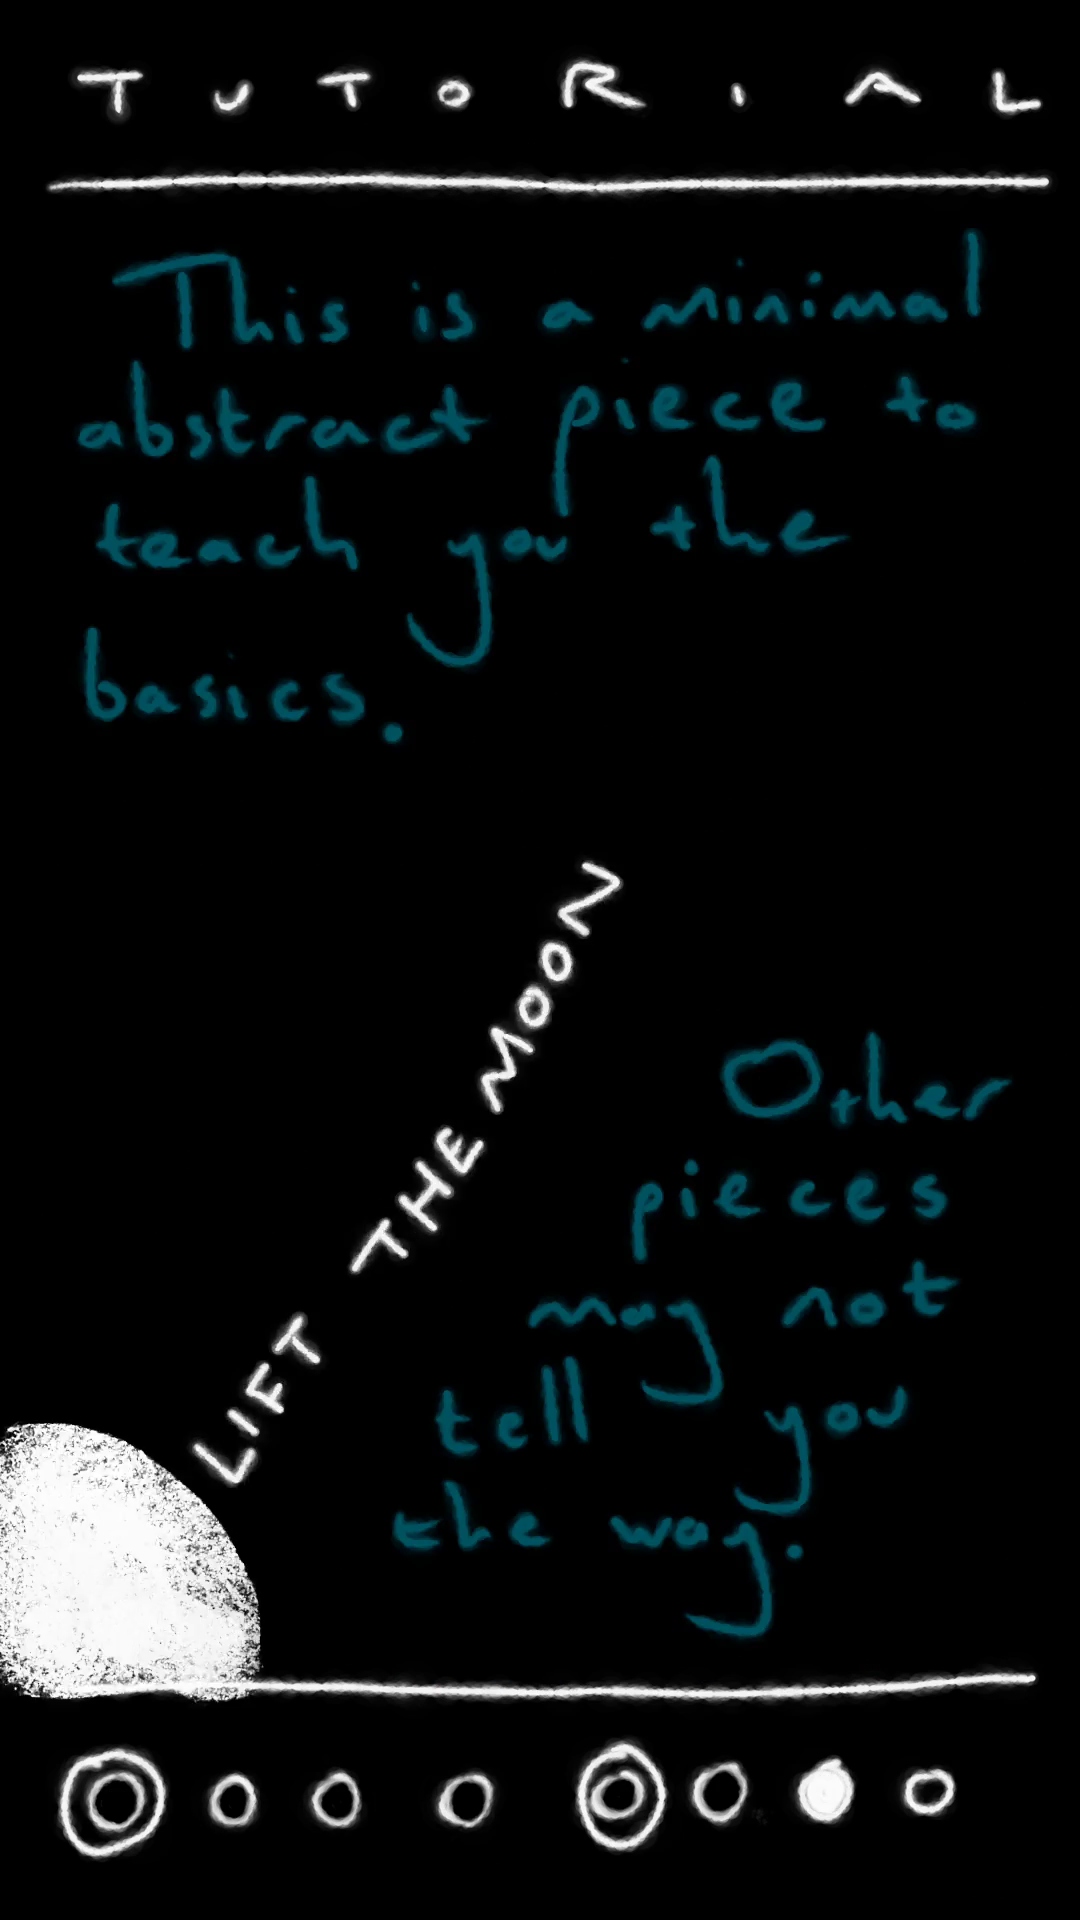 TUTORIAL
This is a minimal
abstract piece to
teach you the
basics.
LIFT THE MOON
Other
pieces
may not
tell you
the way.